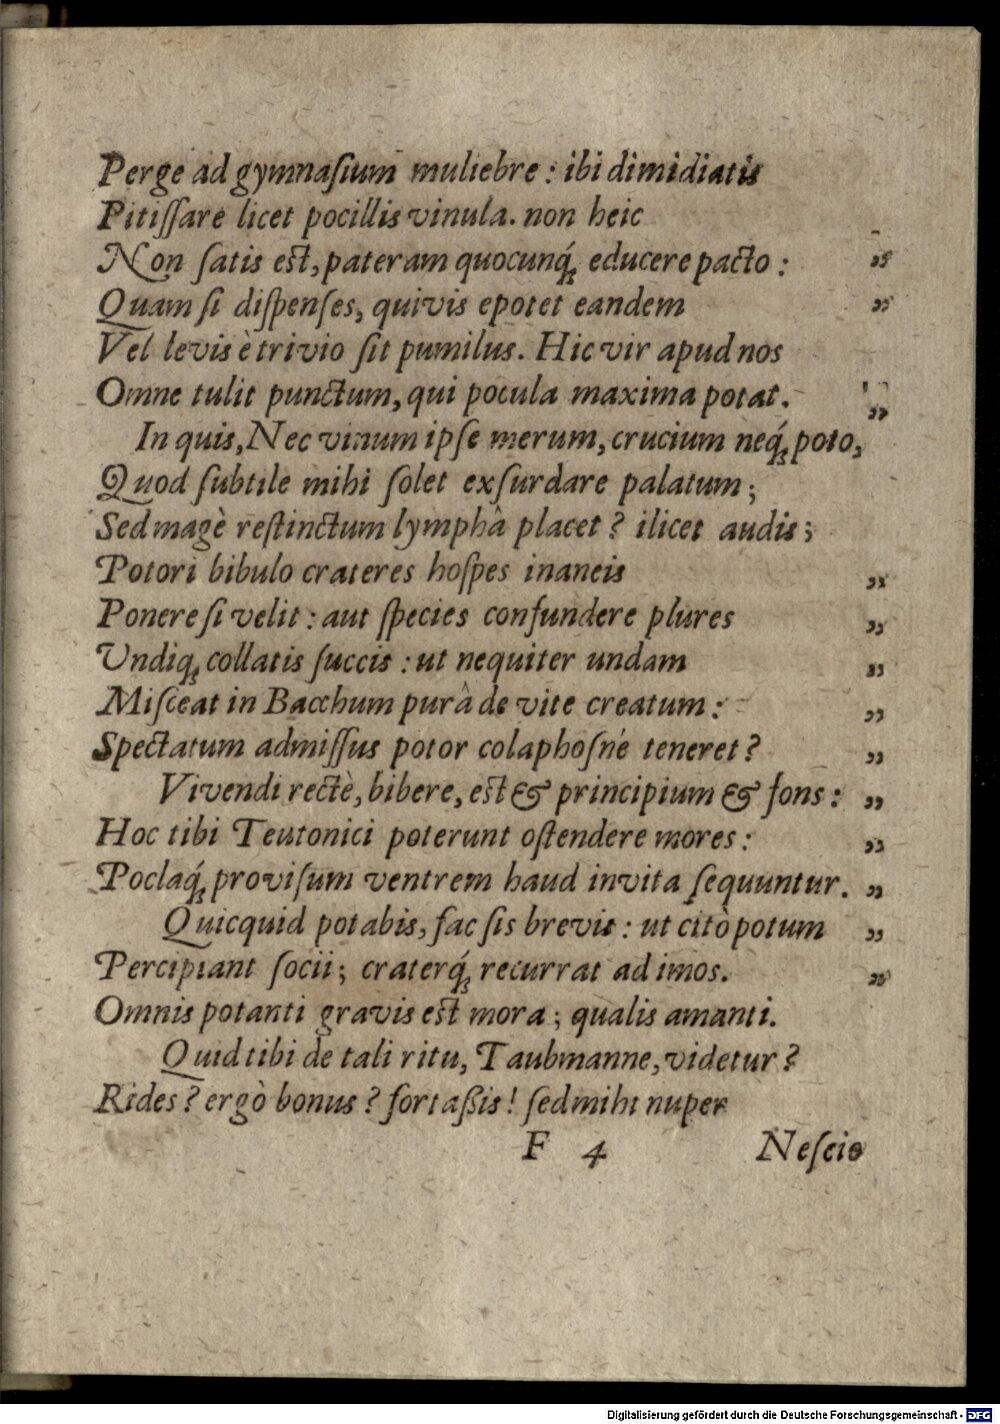 Perge ad gymnaſium muliebre: ibi dimidiatis
Pitiſſare licet pocillis vinula. non heic
Non ſatis est, pateram quocunq́; educere pacto: „
Quam ſi diſpenſes, quivis epotet eandem „
Vel levis è trivio ſit pumilus. Hic vir apud nos
Omne tulit punctum, qui pocula maxima potat. „
In quis, Nec vinum ipſe merum, crucium neq́; poto,
Quod ſubtile mihi ſolet exſurdare palatum;
Sed magè reſtinctum lymphâ placet? ilicet audis;
Potori bibulo crateres hoſpes inaneis „
Ponere ſi velit: aut ſpecies confundere plures „
Undiq; collatis ſuccis: ut nequiter undam „
Miſceat in Bacchum purâ de vite creatum: „
Spectatum admiſſus potor colaphoſnè teneret? „
Vivendi rectè, bibere, est & principium & fons: „
Hoc tibi Teutonici poterunt oſtendere mores: „
Poclaq́; proviſum ventrem haud invita ſequuntur. „
Quicquid potabis, fac ſis brevis: ut citò potum „
Percipiant ſocii; craterq́; recurrat ad imos. „
Omnis potanti gravis est mora; qualis amanti.
Quid tibi de tali ritu, Taubmanne, videtur?
Rides? ergò bonus? fortaßis! ſed mihi nuper
F 4 Neſcio
Digitalisierung gefördert durch die Deutsche Forschungsgemeinschaft - DFG